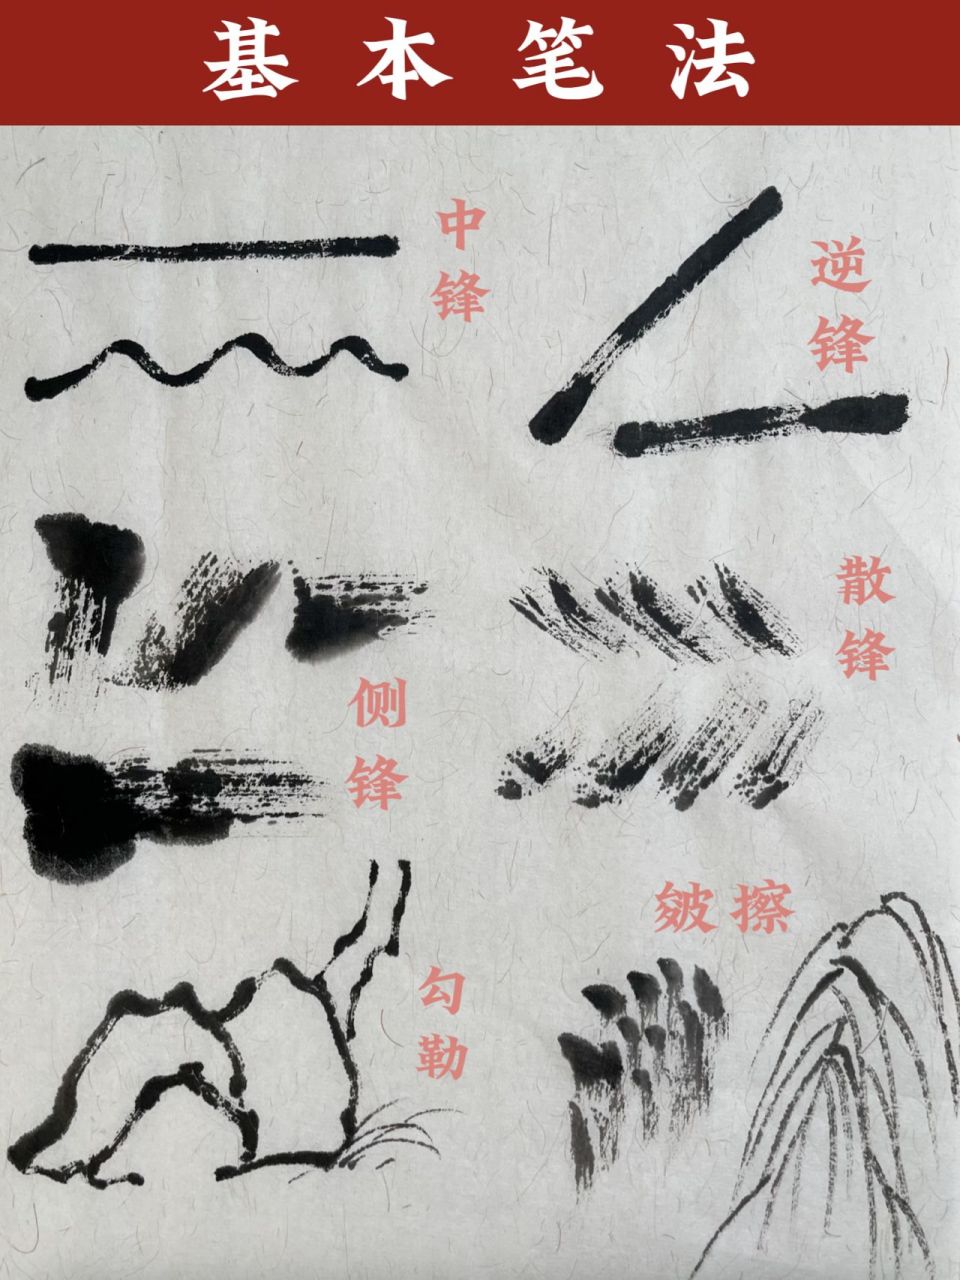 基本笔法
中锋
逆锋
侧锋
散锋
勾勒
皴擦